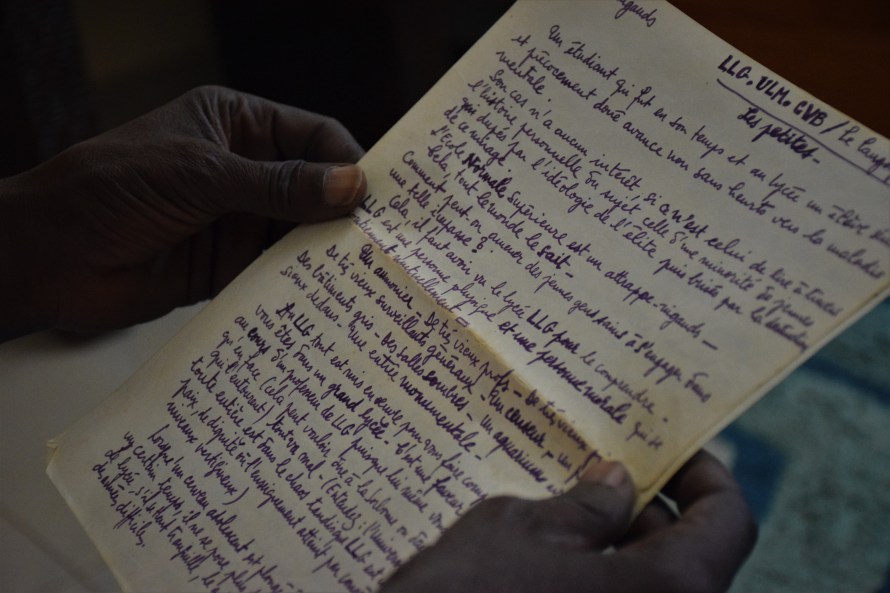 LLG. ULM. CVB / Le
Les petites -
Un étudiant qui fut en son temps et au lycée un élève
et précocement doué avance non sans heurts vers la maladie
mentale.
Son cas n'a aucun intérêt si ce n'est celui de lire à travers
l'histoire personnelle du sujet celle d'une minorité de jeunes
gens dupés par l'idéologie de l'élite puis brisés par la
de ce mirage.
L'Ecole Normale Supérieure est un attrappe-nigauds -
Cela, tout le monde le sait -
Comment peut-on amener des jeunes gens sains à s'engager dans
une telle impasse ?
Cela, il faut avoir vu le lycée LLG pour le comprendre.
LLG est une personne physique et une personne morale qui se
mutuellement
Un aumônier - De très vieux profs - De très vieux
De très vieux surveillants généraux - Un censeur - un
Des bâtiments gris - Des salles sombres - un aquarium
dedans - Une entrée monumentale -
Au LLG tout est mis en oeuvre pour vous faire
vous êtes dans un grand lycée -
au cours d'un professeur de LLG puisque lui même
qu'en face (cela peut vouloir dire à la Sorbonne ou
qui l'entourent) tout va mal - (Entendez : l'Université
toute entière est dans le chaos tandis que LLG est
paix, de dignité où l'enseignement atteint
niveaux vertigineux)
Lorsqu'un cerveau adolescent est
un certain temps, il ne se pose plus
le lycée s'il le veut tranquille, le
difficiles,